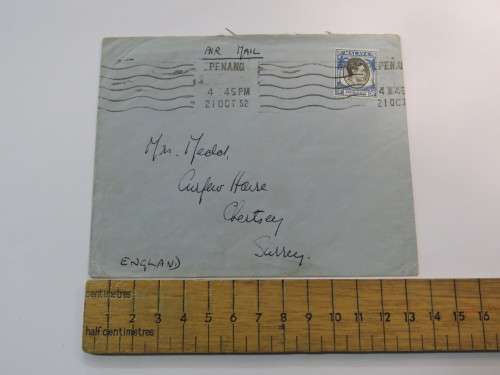 AIR MAIL
PENANG
4 45 PM
21 OCT 52
MALAYA
PENANG
4 45
21 OCT
Mrs. Medd,
Curfew House
Chertsey
Surrey.
ENGLAND
centimetres
1 2 3 4 5 6 7 8 9 10 11 12 13 14 15 16
half centimetres